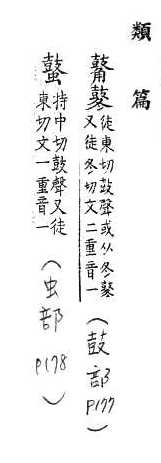 類篇
鼕徒東切鼓聲或从冬鼕
又徒冬切文二重音一
（鼓部 P177）
持中切鼓聲又徒
東切文一重音一
（虫部 P178）